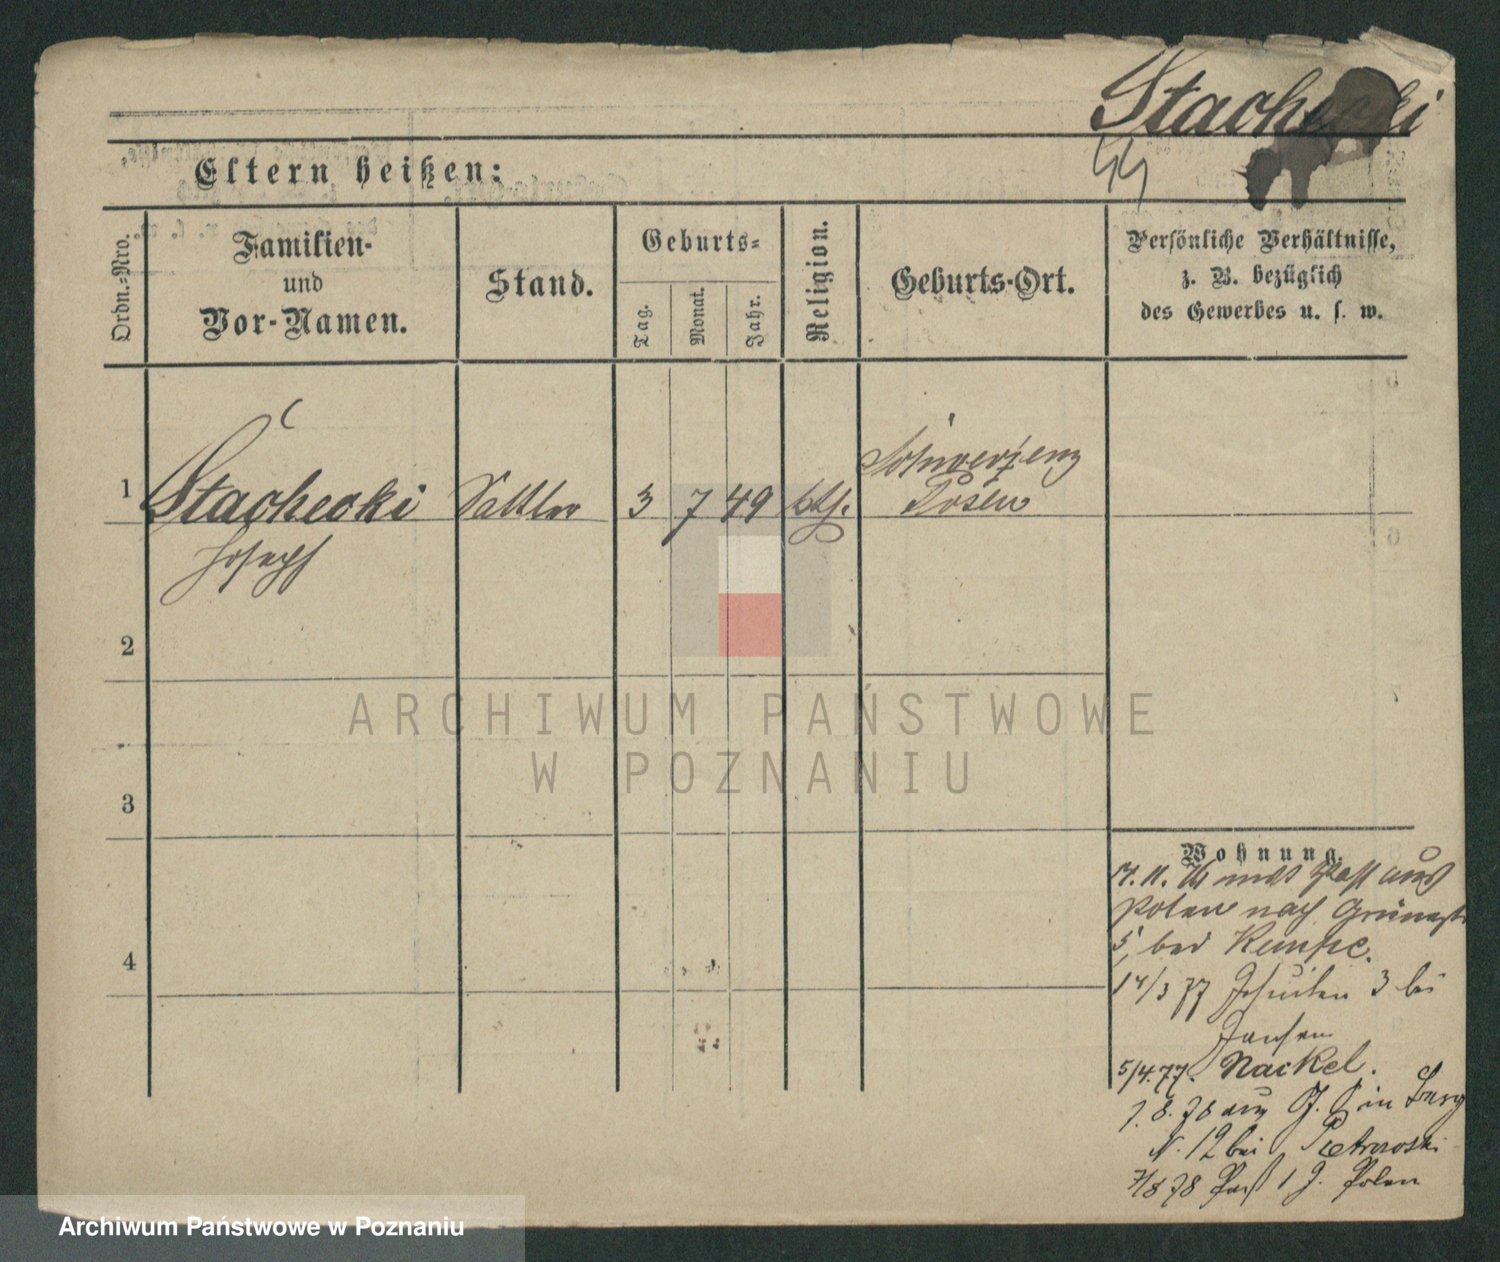 Stachecki
44
Eltern heißen:
Ordn.-Nro.
Familien-
und
Vor-Namen.
Stand.
Geburts-
Tag.
Monat.
Jahr.
Religion.
Geburts-Ort.
Persönliche Verhältnisse,
z. B. bezüglich
des Gewerbes u. s. w.
1
Stachecki
Joseph
Sattler
3
7
49
kth.
Schwersenz
Posen
2
3
4
Wohnung.
11. mit Paß aus
Polen nach Grünestr
5, bei
14/3 77 Jesuiten 3 bei
Jansen
5/4.77. Nackel.
7. 8. 78 aus in
N. 12 bei Pietrowski
7/8 78 Paß 1 J. Polen
ARCHIWUM PAŃSTWOWE
W POZNANIU
Archiwum Państwowe w Poznaniu